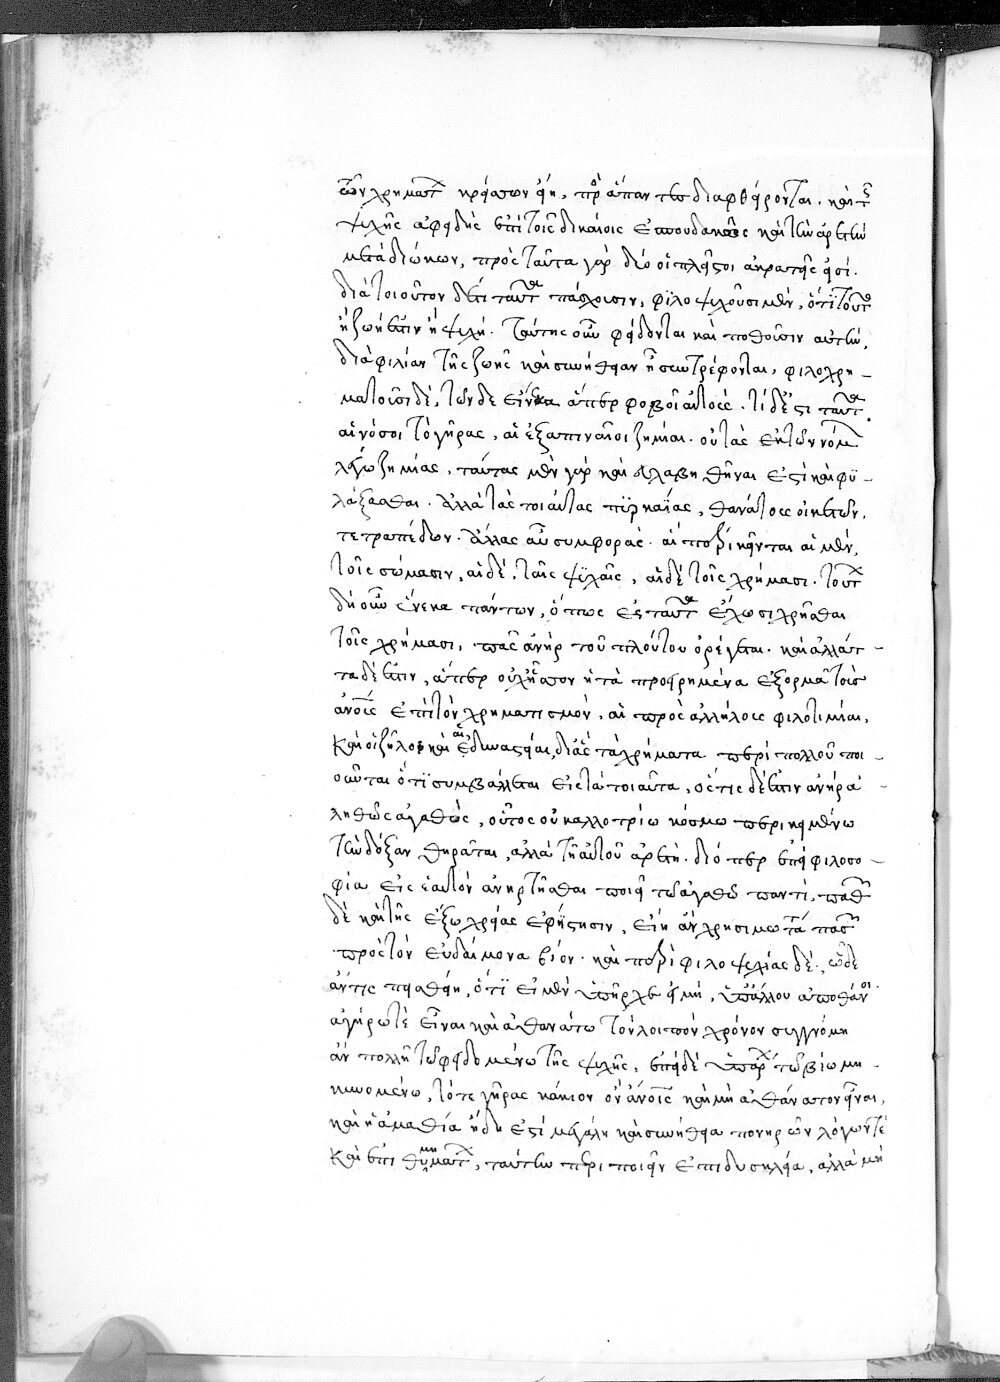 τῶν χρημάτων κρείσσων εἴη, πρὸς ἅπαντες διαφθείρονται, καὶ τῆς
ψυχῆς ἀφειδὴς ἐπὶ τοῖς δικαίοις ἐσπουδακὼς καὶ τὴν ἀρετὴν
μεταδιώκων, πρὸς ταῦτα γὰρ δύο οἱ πλεῖστοι ἀκρατεῖς εἰσί.
διὰ τοιοῦτον δέ τι ταῦτα πάσχουσιν, φιλοψυχοῦσι μὲν, ὅτι τοῦτο
ἡ ζωή ἐστιν ἡ ψυχή. ταύτης οὖν φείδονται καὶ ποθοῦσιν αὐτὴν,
διὰ φιλίαν τῆς ζωῆς καὶ συνήθειαν ᾗ συντρέφονται, φιλοχρη-
ματοῦσι δὲ, τῶν δε εἵνεκα ἅπερ φοβοῖ αὐτούς. τί δέ ἐστι ταῦτα.
αἱ νόσοι τὸ γῆρας, αἱ ἐξαπιναῖοι ζημίαι. οὐ τὰς ἐκ τῶν νόμων
λέγω ζημίας, ταύτας μὲν γὰρ καὶ βλαβηθῆναι ἐστὶ καὶ φϋ-
λάξασθαι. ἀλλὰ τὰς τοιαύτας πϋρκαϊάς, θανάτους οἰκετῶν,
τετραπέδων. ἄλλας αὖ συμφορὰς. αἳ περίκεινται αἱ μὲν,
τοῖς σώμασιν, αἱ δὲ, ταῖς ψυχαῖς, αἱ δὲ τοῖς χρήμασι. τούτων
δὴ οὖν ἕνεκα πάντων, ὅπως ἐς ταῦτα ἔχωσι χρῆσθαι
τοῖς χρήμασι, πᾶς ἀνὴρ τοῦ πλούτου ὀρέγεται. καὶ ἀλλ' ἄτ-
τα δέ ἐστιν, ἅπερ οὐχ ἧσσον ἢ τὰ προειρημένα ἐξορμᾷ τοὺς
ἀνθρώπους ἐπὶ τὸν χρηματισμόν, αἱ πρὸς ἀλλήλους φιλοτιμίαι,
καὶ οἱ ζῆλοι καὶ αἱ δυναστεῖαι, δι' ἃς τὰ χρήματα περὶ πολλοῦ ποι-
οῦνται ὅτι συμβάλλεται εἰς τὰ τοιαῦτα, ὅστις δέ ἐστιν ἀνὴρ ἀ-
ληθῶς ἀγαθὸς, οὗτος οὐκ ἀλλοτρίῳ κόσμῳ περικειμένῳ
τὴν δόξαν θηρᾶται, ἀλλὰ τῇ αὐτοῦ ἀρετῇ. διόπερ ἐπεὶ φιλοσο-
φία εἰς ἑαυτὸν ἀνηρτῆσθαι ποιεῖ τῷ ἀγαθῷ παντὶ,
δὲ καὶ τῆς ἔξω χρείας ἐφίστησιν, εἴη ἂν χρησιμωτάτη πασῶν
πρὸς τὸν εὐδαίμονα βίον. καὶ περὶ φιλοψυχίας δὲ, ὧδε
ἄν τις πεισθείη, ὅτι εἰ μὲν ὑπῆρχεν εἰ μὴ, ὑπ' ἄλλου ἀποθάνοι.
ἀγήρῳ τὲ εἶναι καὶ ἀθανάτῳ τὸν λοιπὸν χρόνον συγγνώμη
ἂν πολλὴ τῷ φειδομένῳ τῆς ψυχῆς, ἐπεὶ δὲ ὑπάρχει τῷ βίῳ μη-
κυνομένῳ, τό τε γῆρας κάκιον ὂν ἀνθρώποις καὶ μὴ ἀθάνατον εἶναι,
καὶ ἡ ἀμαθία ἤδη ἐστὶ μεγάλη καὶ συνήθεια πονηρῶν λόγων τὲ
καὶ ἐπιθυμημάτων, ταύτην περιποιεῖν ἐπὶ δυσκλείᾳ, ἀλλὰ μὴ